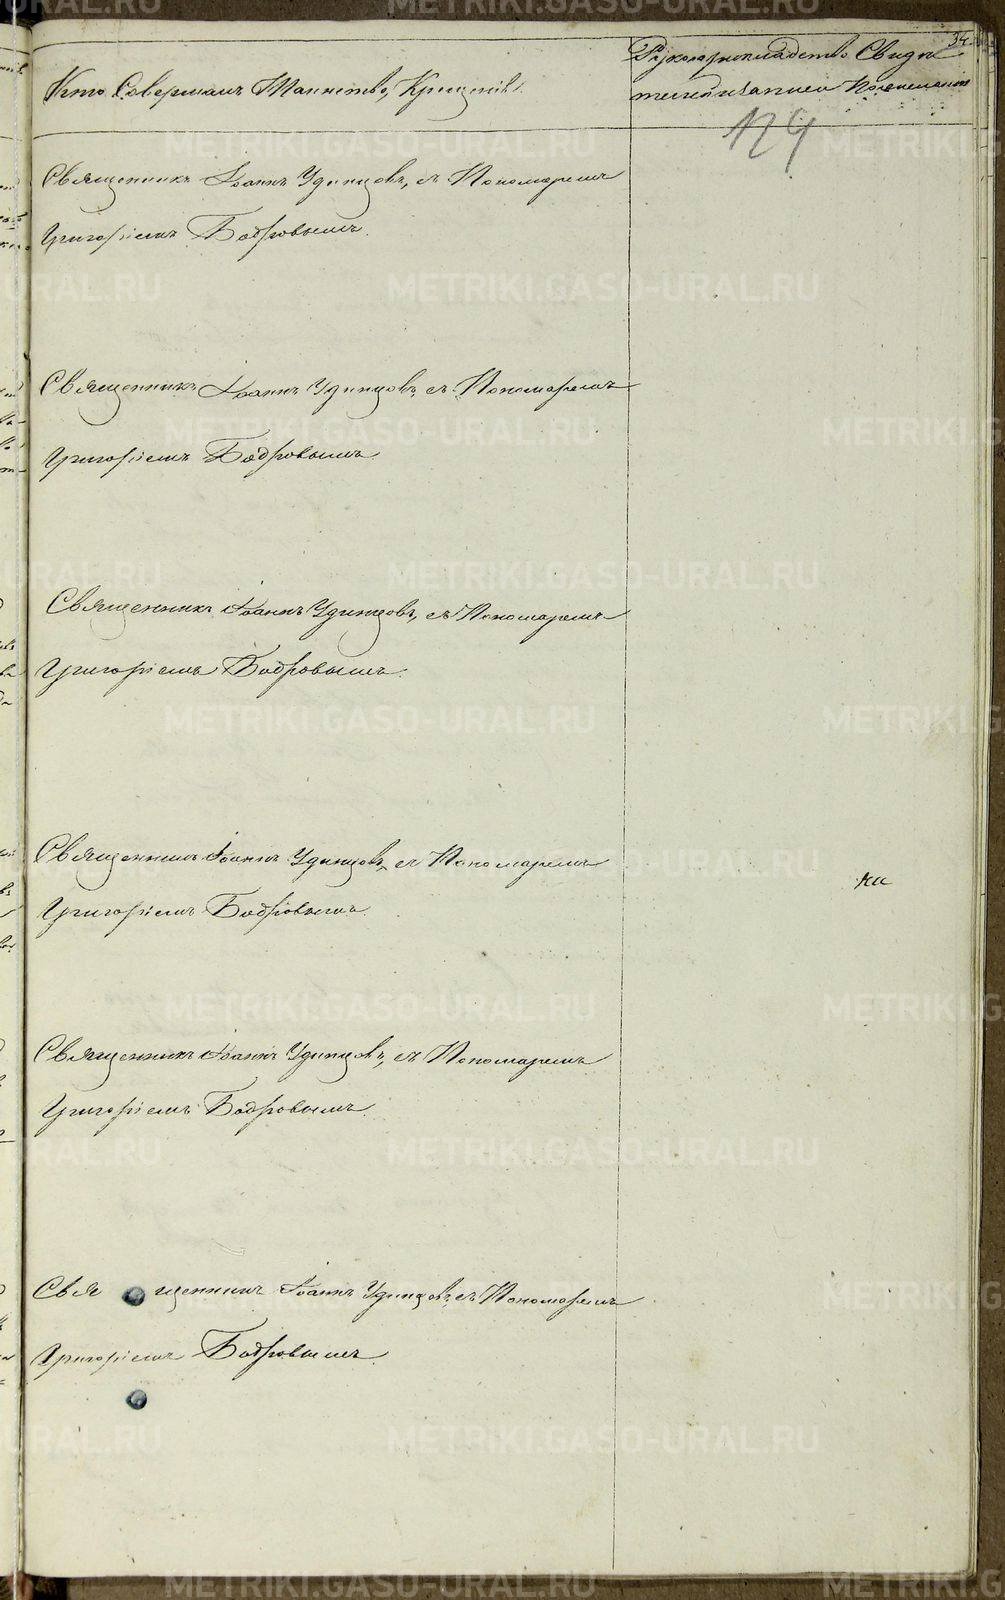 34
Кто Совершалъ Таинство Крещенія.
Рукоприкладство Свидѣ
тельй записи
124
Священникъ Іоаннъ Удинцовъ, съ Пономаремъ
Григоріемъ Бодровымъ.
Священникъ Іоаннъ Удинцовъ, съ Пономаремъ
Григоріемъ Бодровымъ
Священникъ Іоаннъ Удинцовъ, съ Пономаремъ
Григоріемъ Бодровымъ.
Священникъ Іоаннъ Удинцовъ, съ Пономаремъ
Григоріемъ Бодровымъ.
ки
Священникъ Іоаннъ Удинцовъ, съ Пономаремъ
Григоріемъ Бодровымъ.
Священникъ Іоаннъ Удинцовъ, съ Пономаремъ
Григоріемъ Бодровымъ.
METRIKI.GASO-URAL.RU